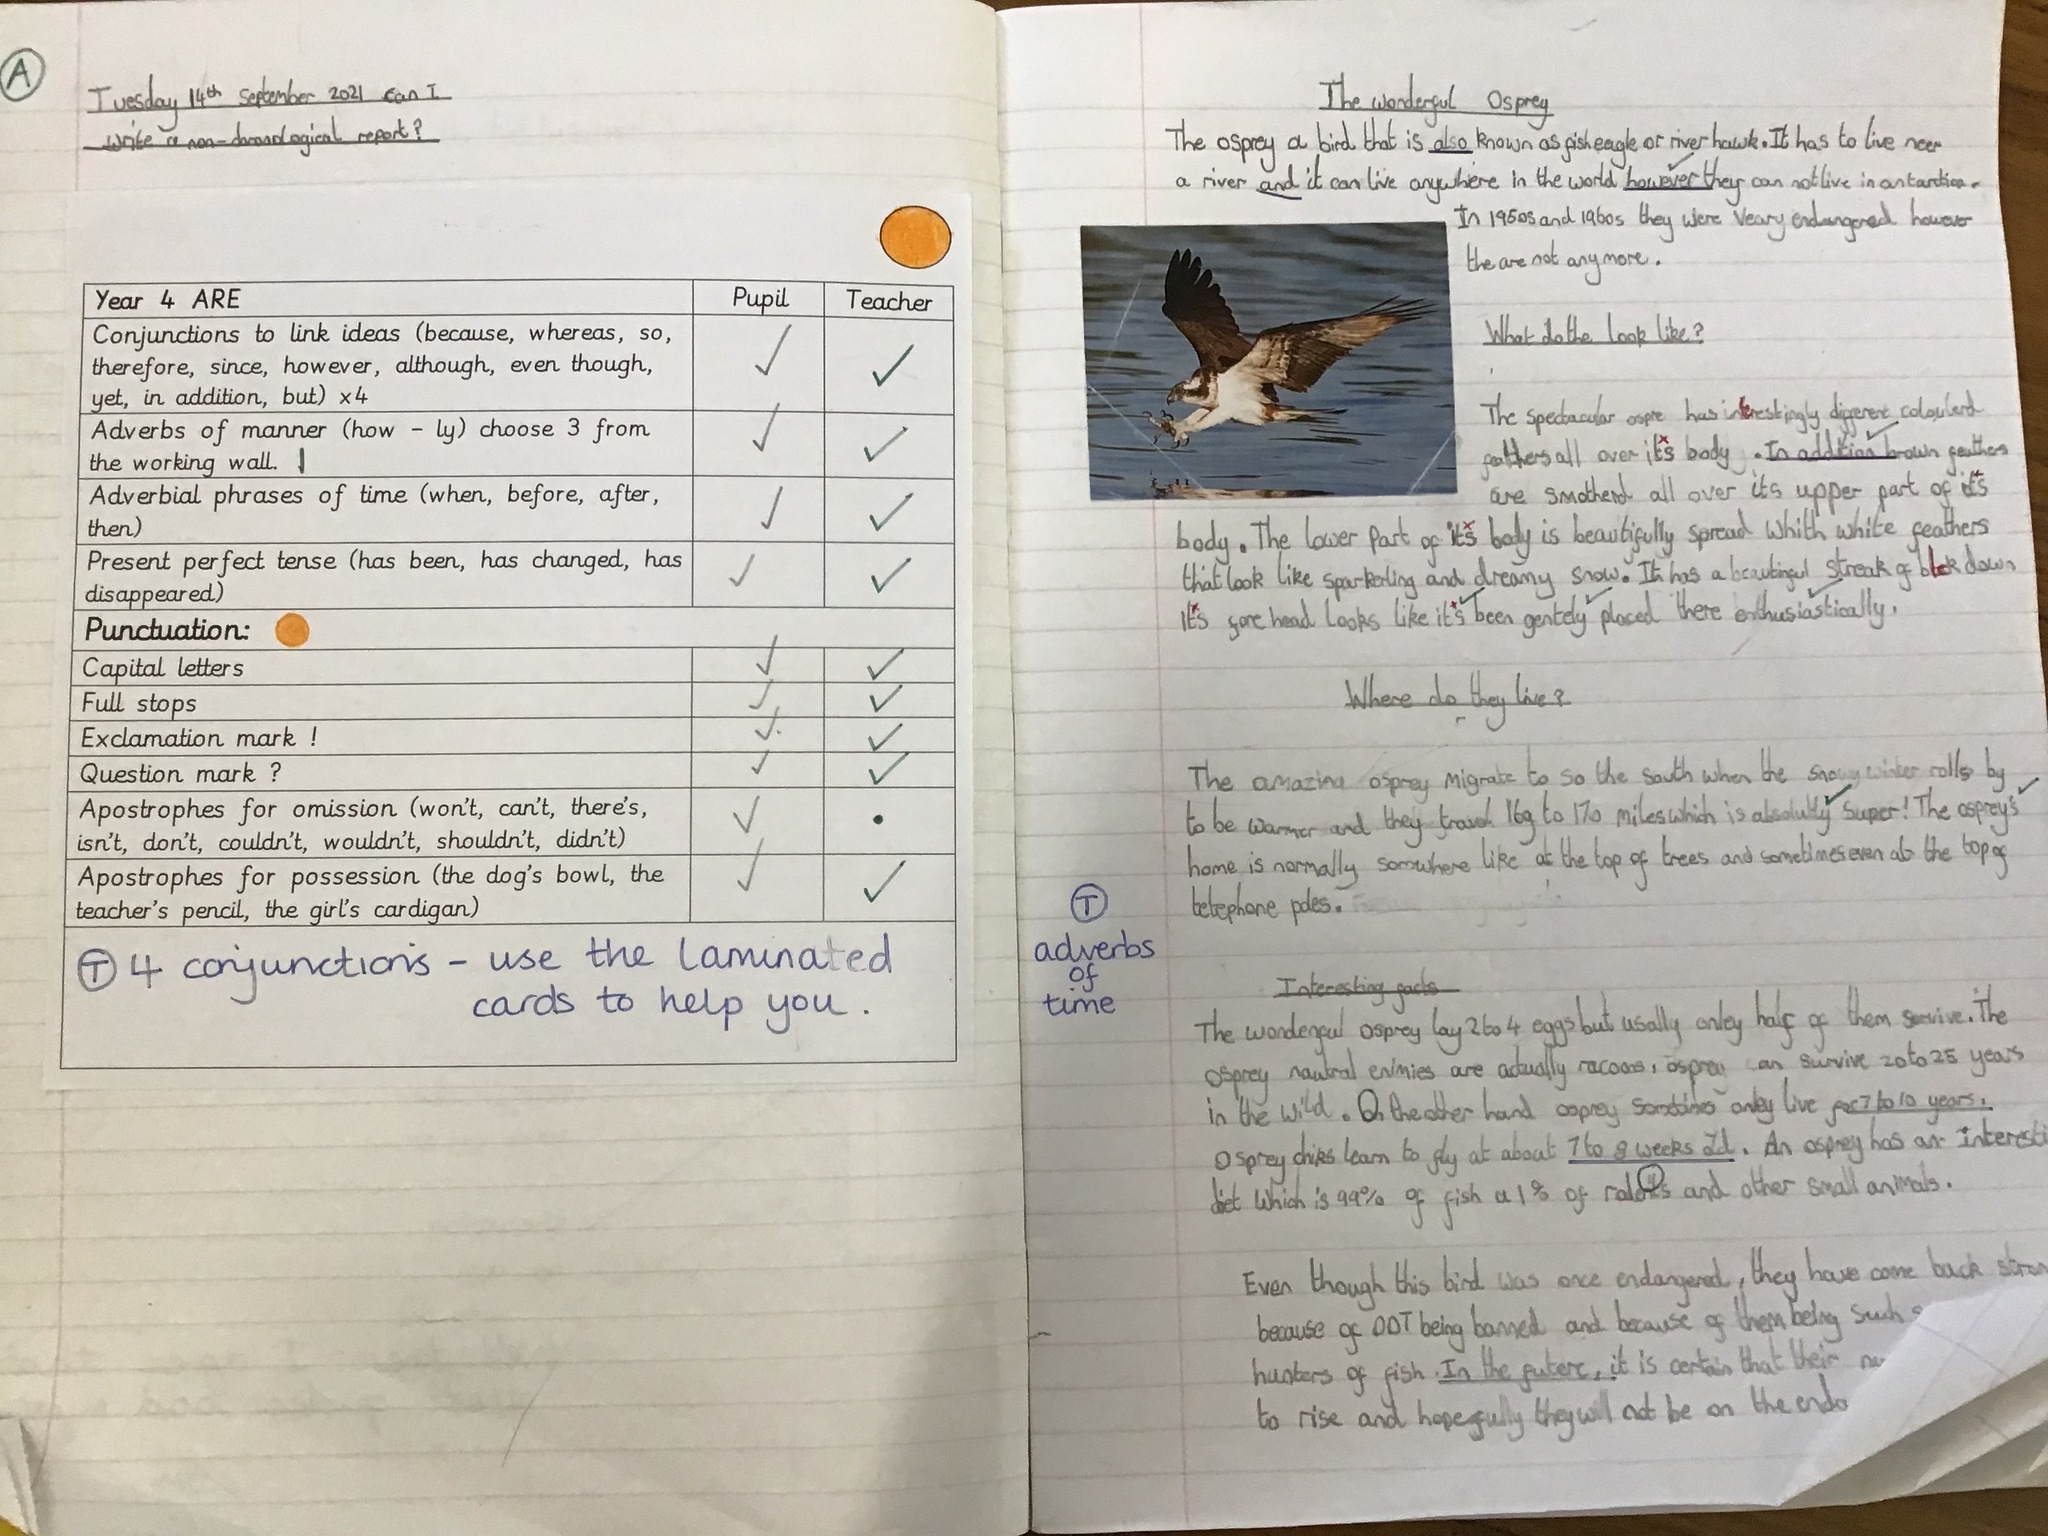 A
Tuesday 14th September 2021 Can I
write a non-chronological report?
Year 4 ARE Pupil Teacher
Conjunctions to link ideas (because, whereas, so,
therefore, since, however, although, even though,
yet, in addition, but) x4
Adverbs of manner (how – ly) choose 3 from
the working wall.
Adverbial phrases of time (when, before, after,
then)
Present perfect tense (has been, has changed, has
disappeared)
Punctuation:
Capital letters
Full stops
Exclamation mark !
Question mark ?
Apostrophes for omission (won't, can't, there's,
isn't, don't, couldn't, wouldn't, shouldn't, didn't)
Apostrophes for possession (the dog's bowl, the
teacher's pencil, the girl's cardigan)
T 4 conjunctions – use the laminated
cards to help you.
The wonderful Osprey
The osprey a bird that is also known as fish eagle or river hawk. It has to live near
a river and it can live anywhere in the world however they can not live in antartica.
In 1950s and 1960s they were veary endangered however
the are not any more.
What do the look like?
The spectacular ospre has interestingly different coloulerd
feathers all over it's body. In addition brown feathers
are smotherd all over its upper part of it's
body. The lower part of it's body is beautifully spread whith white feathers
that look like sparkerling and dreamy snow. It has a beautinful streak of down
it's fore head looks like it's been gentely placed there enthusiastically.
Where do they live?
The amazing osprey migrate to so the south when the snowy winter rolls by
to be warmer and they travel 169 to 170 miles which is absolutly super! The osprey's
home is normally somwhere like at the top of trees and sometimes even at the top of
telephone poles.
T
adverbs
of
time
Interesting facts
The wonderful osprey lay 2 to 4 eggs but usally onley half of them servive. The
osprey nautral enimies are actually racoons, osprey can survive 20 to 25 years
in the wild. On the other hand osprey somtimes onley live for 7 to 10 years.
Osprey chiks learn to fly at about 7 to 8 weeks old. An osprey has an interesti
diet which is 99% of fish a 1% of and other small animals.
Even though this bird was once endangered, they have come back stron
because of DDT being banned and because of them being such
hunters of fish. In the futere, it is certain that their
to rise and hopefully they will not be on the enda